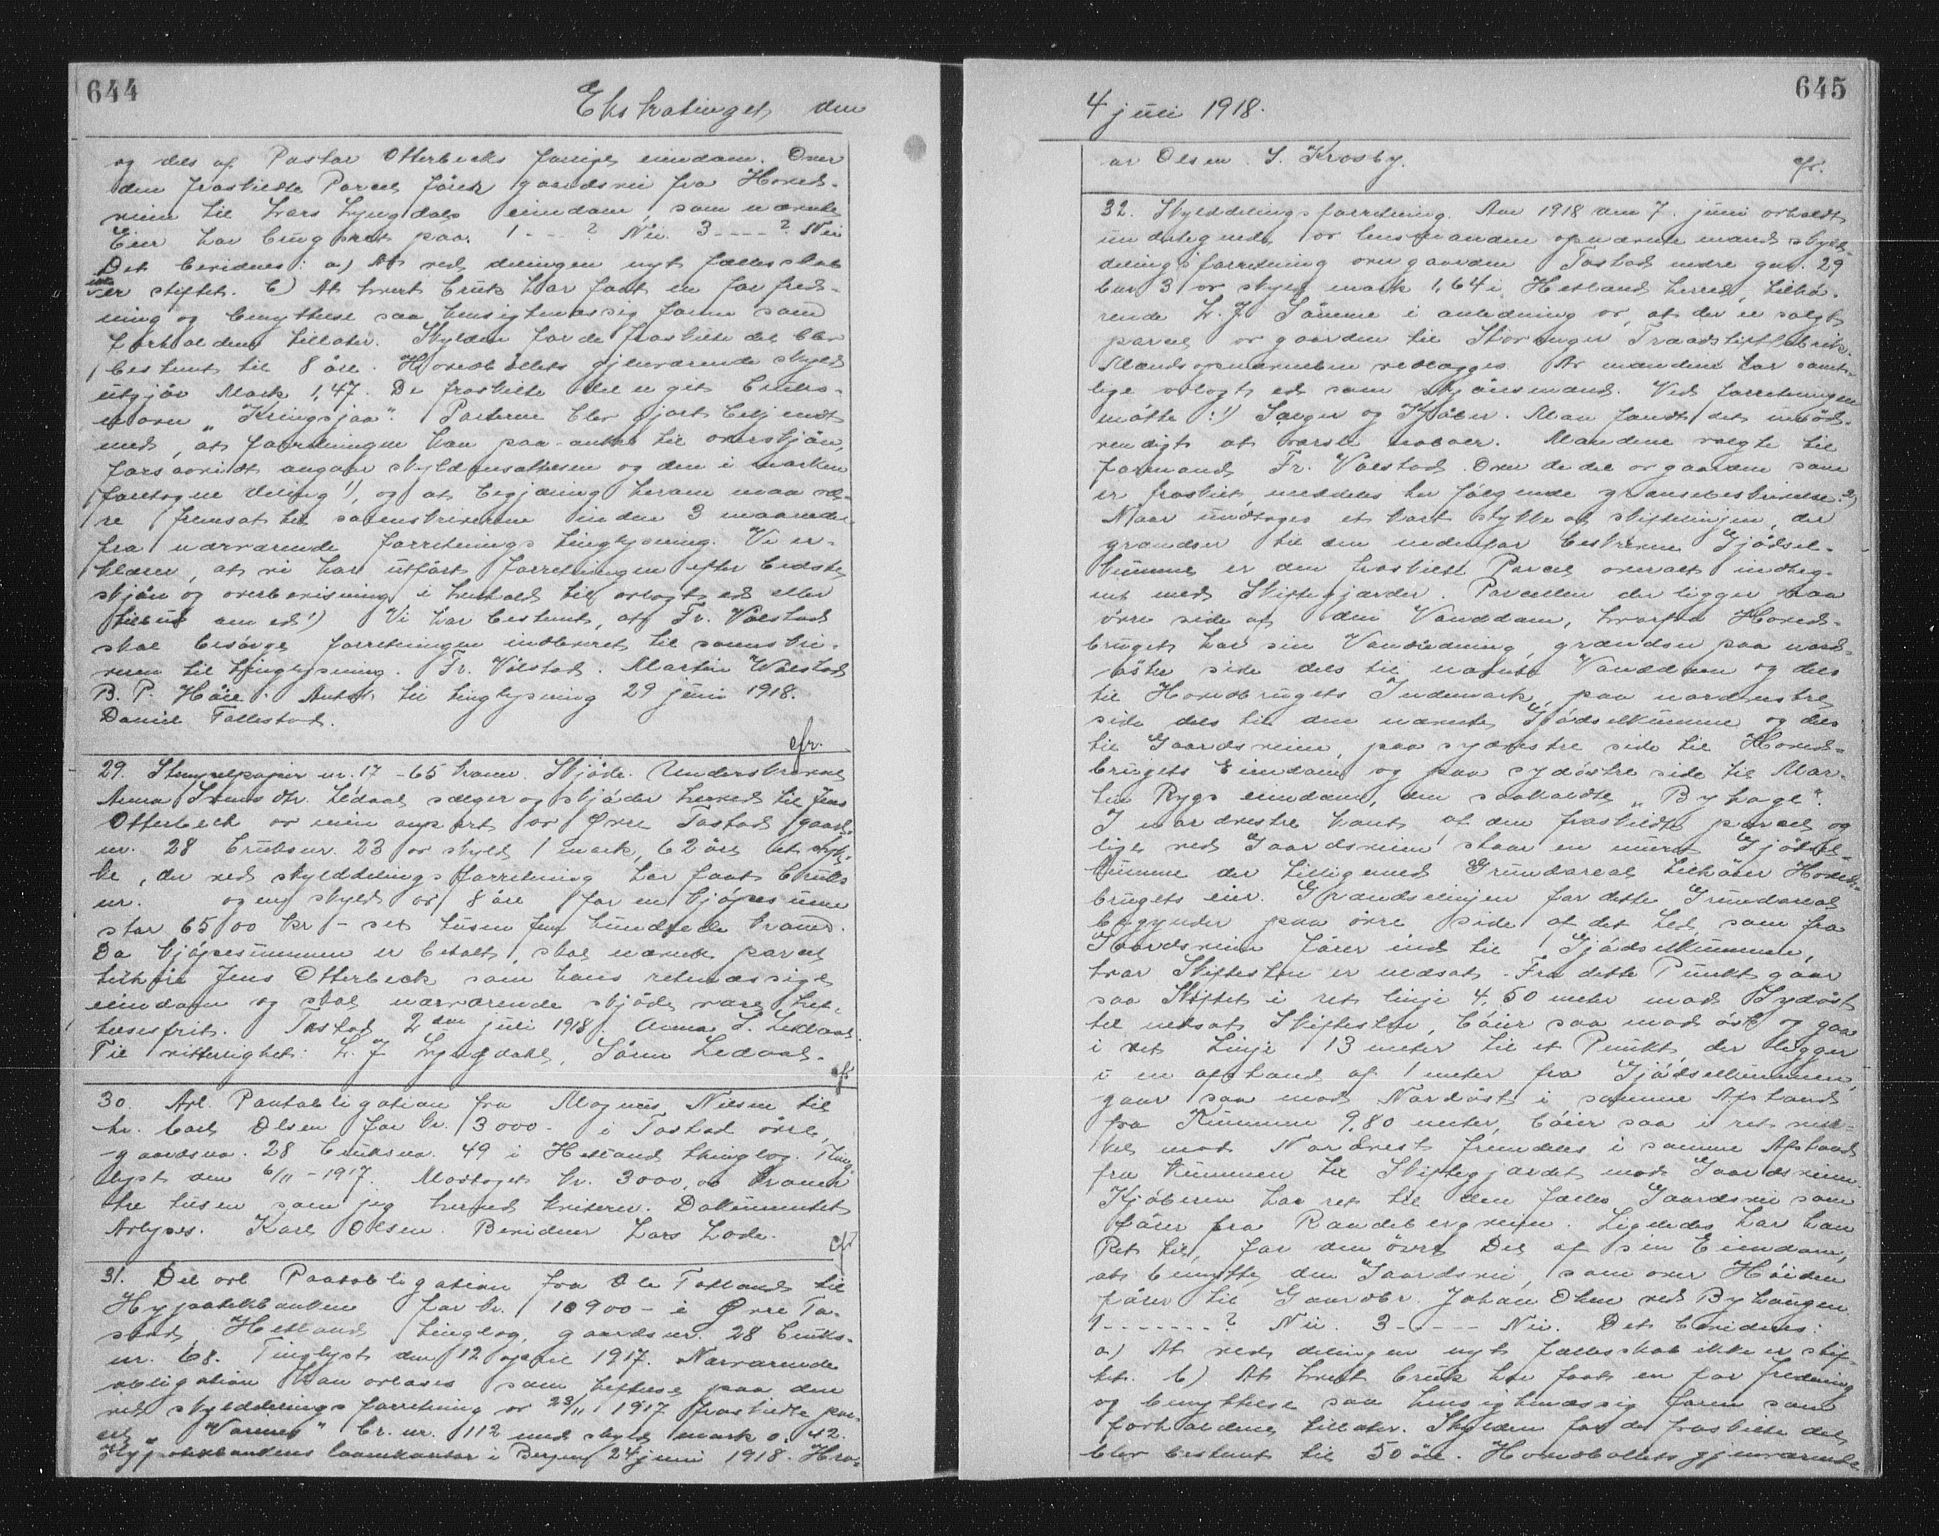 644
Ekstratinget den
og dels af Pastor Otterbecks forrige eiendom. Over
den fraskildte Parcel fører gaardsvei fra Hoved-
veien til Lars Lyngdals eiendom, som nævnte
Eier har brugsret paa. 1 - - - ? Nei. 3 - - - - ? Nei
Det bevidnes: a) At ved delingen nyt fællesskab
ikke er stiftet. b) At hvert bruk har faat en for fred-
ning og benyttelse saa hensigtmæssig form som
forholdene tillater. Skylden for de fraskilte del blev
bestemt til 8 øre. Hovedbøllets gjenværende skyld
utgjør Mark 1,47. De fraskilte del er git bruks-
navn "Kringsjaa". Parterne blev gjort bekjendt
med, at forretningen kan paa-ankes til overskjøn,
forsaavidt angaar skyldansættelsen og den i marken
foretagne deling 1), og at begjæring herom maa væ-
re fremsat til sorenskriveren inden 3 maaneder
fra nærværende forretnings tinglysning. Vi er-
klærer, at vi har utført forretningen efter bedste
skjøn og overbevisning i henhold til avlagt ed eller
tilbud om ed 1) Vi har bestemt, at Fr. Valstad
skal besørge forretningen indleveret til sorenskri-
veren til tinglysning. Fr. Valstad. Martin Valstad
B. P. Høie. Antat til tinglysning 29 juni 1918.
Daniel Tallestad.
cfr.
29. Stempelpapir nr. 17 - 65 kroner. Skjøde. Underskrevne
Anna Sems dtr. Ledaal sælger og skjøder herved til Jens
Otterbeck av min anpart av Øvre Tastad gaards
nr. 28 bruksnr. 23 av skyld 1 mark, 62 øre et styk-
ke, der ved skylddelingsforretning har faat bruks
nr. og en skyld av 8 øre for en kjøpesum
stor 6500 kr - seks tusen fem hundrede kroner.
Da kjøpesummen er betalt, skal nævnte parcel
tilhøre Jens Otterbeck som hans retmæssige
eiendom og skal nærværende skjøde være hef-
telsesfrit. Tastad 2den juli 1918. Anna S. Ledaal
Til vitterlighet: L. J. Lyngdahl, Søren Ledaal.
cfr
30. Avl. Pantobligation fra Magnus Nilsen til
hr. Carl Olsen for kr. 3000- i Tastad øvre,
gaardsno. 28 bruksno. 49 i Hetland thinglag. Ting-
lyst den 6/11 - 1917. Mottaget kr. 3000, er kroner
tre tusen som jeg herved kviterer. Dokumentet
avlyses. Karl Olsen. Bevidner Lars Lode.
cfr
31. Del avl Pantobligation fra Ole Tatland til
Hypotekbanken for kr. 10900- i Øvre Ta-
stad, Hetland tinglag, gaardsnr. 28 bruks-
nr. 68. Tinglyst den 12 april 1917. Nærværende
obligation kan avlæses som heftelse paa den
ved skylddelingsforretning av 23/11 1917 fraskildte par-
cel br. nr. 112 med skyld mark 0.42.
Hypotekbankens laanekontor i Bergen 24 juni 1918.
645
4 juli 1918.
ar Olsen. S. Krosby.
cfr.
32. Skylddelingsforretning. Aar 1918 den 7. juni avholdt
undertegnede av lensmanden opnævnte mænd skyld-
delingsforretning over gaarden Tastad nedre gnr. 29
bnr 3 av skyld mark 1,64 i Hetland herred, tilhø-
rende L. J. Sømme i anledning av, at der er solgt
parcel av gaarden til Stavanger Traadstiftfabrik.
Mandsopnævnelsen vedlægges. Av mændene har samt-
lige avlagt ed som skjønsmænd. Ved forretningen
møtte: 1) Sælger og Kjøber. Man fandt det unød-
vendigt at varsle naboer. Mændene valgte til
formand Fr. Valstad. Over de del av gaarden som
er fraskilt, meddeles her følgende grænsebeskrivelse: 2)
Naar undtages et kort stykke af skiftelinjen, der
grændser til den nedenfor beskrevne Gjødsel-
kumme er den fraskilte Parcel overalt indheg-
net med Skiftegjærder. Parcellen der ligger paa
øvre side af den Vanddam, hvorfra Hoved-
bruget har sin Vandledning, grændser paa nord-
østre side dels til nævnte Vanddam og dels
til Hovedbrugets Indemark, paa nordvestre
side dels til den nævnte Gjødselkumme og dels
til Gaardsveien, paa sydvestre side til Hoved-
brugets Eiendom og paa sydøstre side til Mar-
tin Rygs eiendom, den saakaldte "Byhage".
I nordvestre kant af den fraskildte parcel og
lige ved Gaardsveien staar en muret Gjødsel-
kumme der tilligemed Grundareal tilhører Hoved-
brugets eier. Grændselinjen for dette Grundareal
begynder paa øvre side af det Led, som fra
Gaardsveien fører ind til Gjødselkummen,
hvor Skiftesten er nedsat. Fra dette Punkt gaar
saa Skiftet i ret linje 4.50 meter mod Sydøst
til nedsat Skiftesten, bøier saa mod øst og gaar
i ret Linje 13 meter til et Punkt, der ligger
i en afstand af 1 meter fra Gjødselkummen,
gaar saa mod Nordøst i samme Afstand
fra Kummen 9.80 meter, bøier saa i ret vink-
kel mod Nordvest fremdeles i samme Afstand
fra kummen til Skiftegjærdet mod Gaardsveien.
Kjøberen har ret til den fælles Gaardsvei som
fører fra Randebergveien. Ligeledes har han
Ret til, for den øvre Del af sin Eiendom,
at benytte den Gaardsvei, som over Høiden
fører til Gaardbr. Johan Olsen ved Byhaugen
1 - - - - - - - ? Nei. 3 - - - - - Nei. Det bevidnes:
a) At ved delingen nyt fællesskab ikke er stif-
tet. b) At hvert bruk har faat en for fredning
og benyttelse saa hensigtmæssig form som
forholdene tillater. Skylden for de fraskilte del
blev bestemt til 50 øre. Hovedbøllets gjenværende